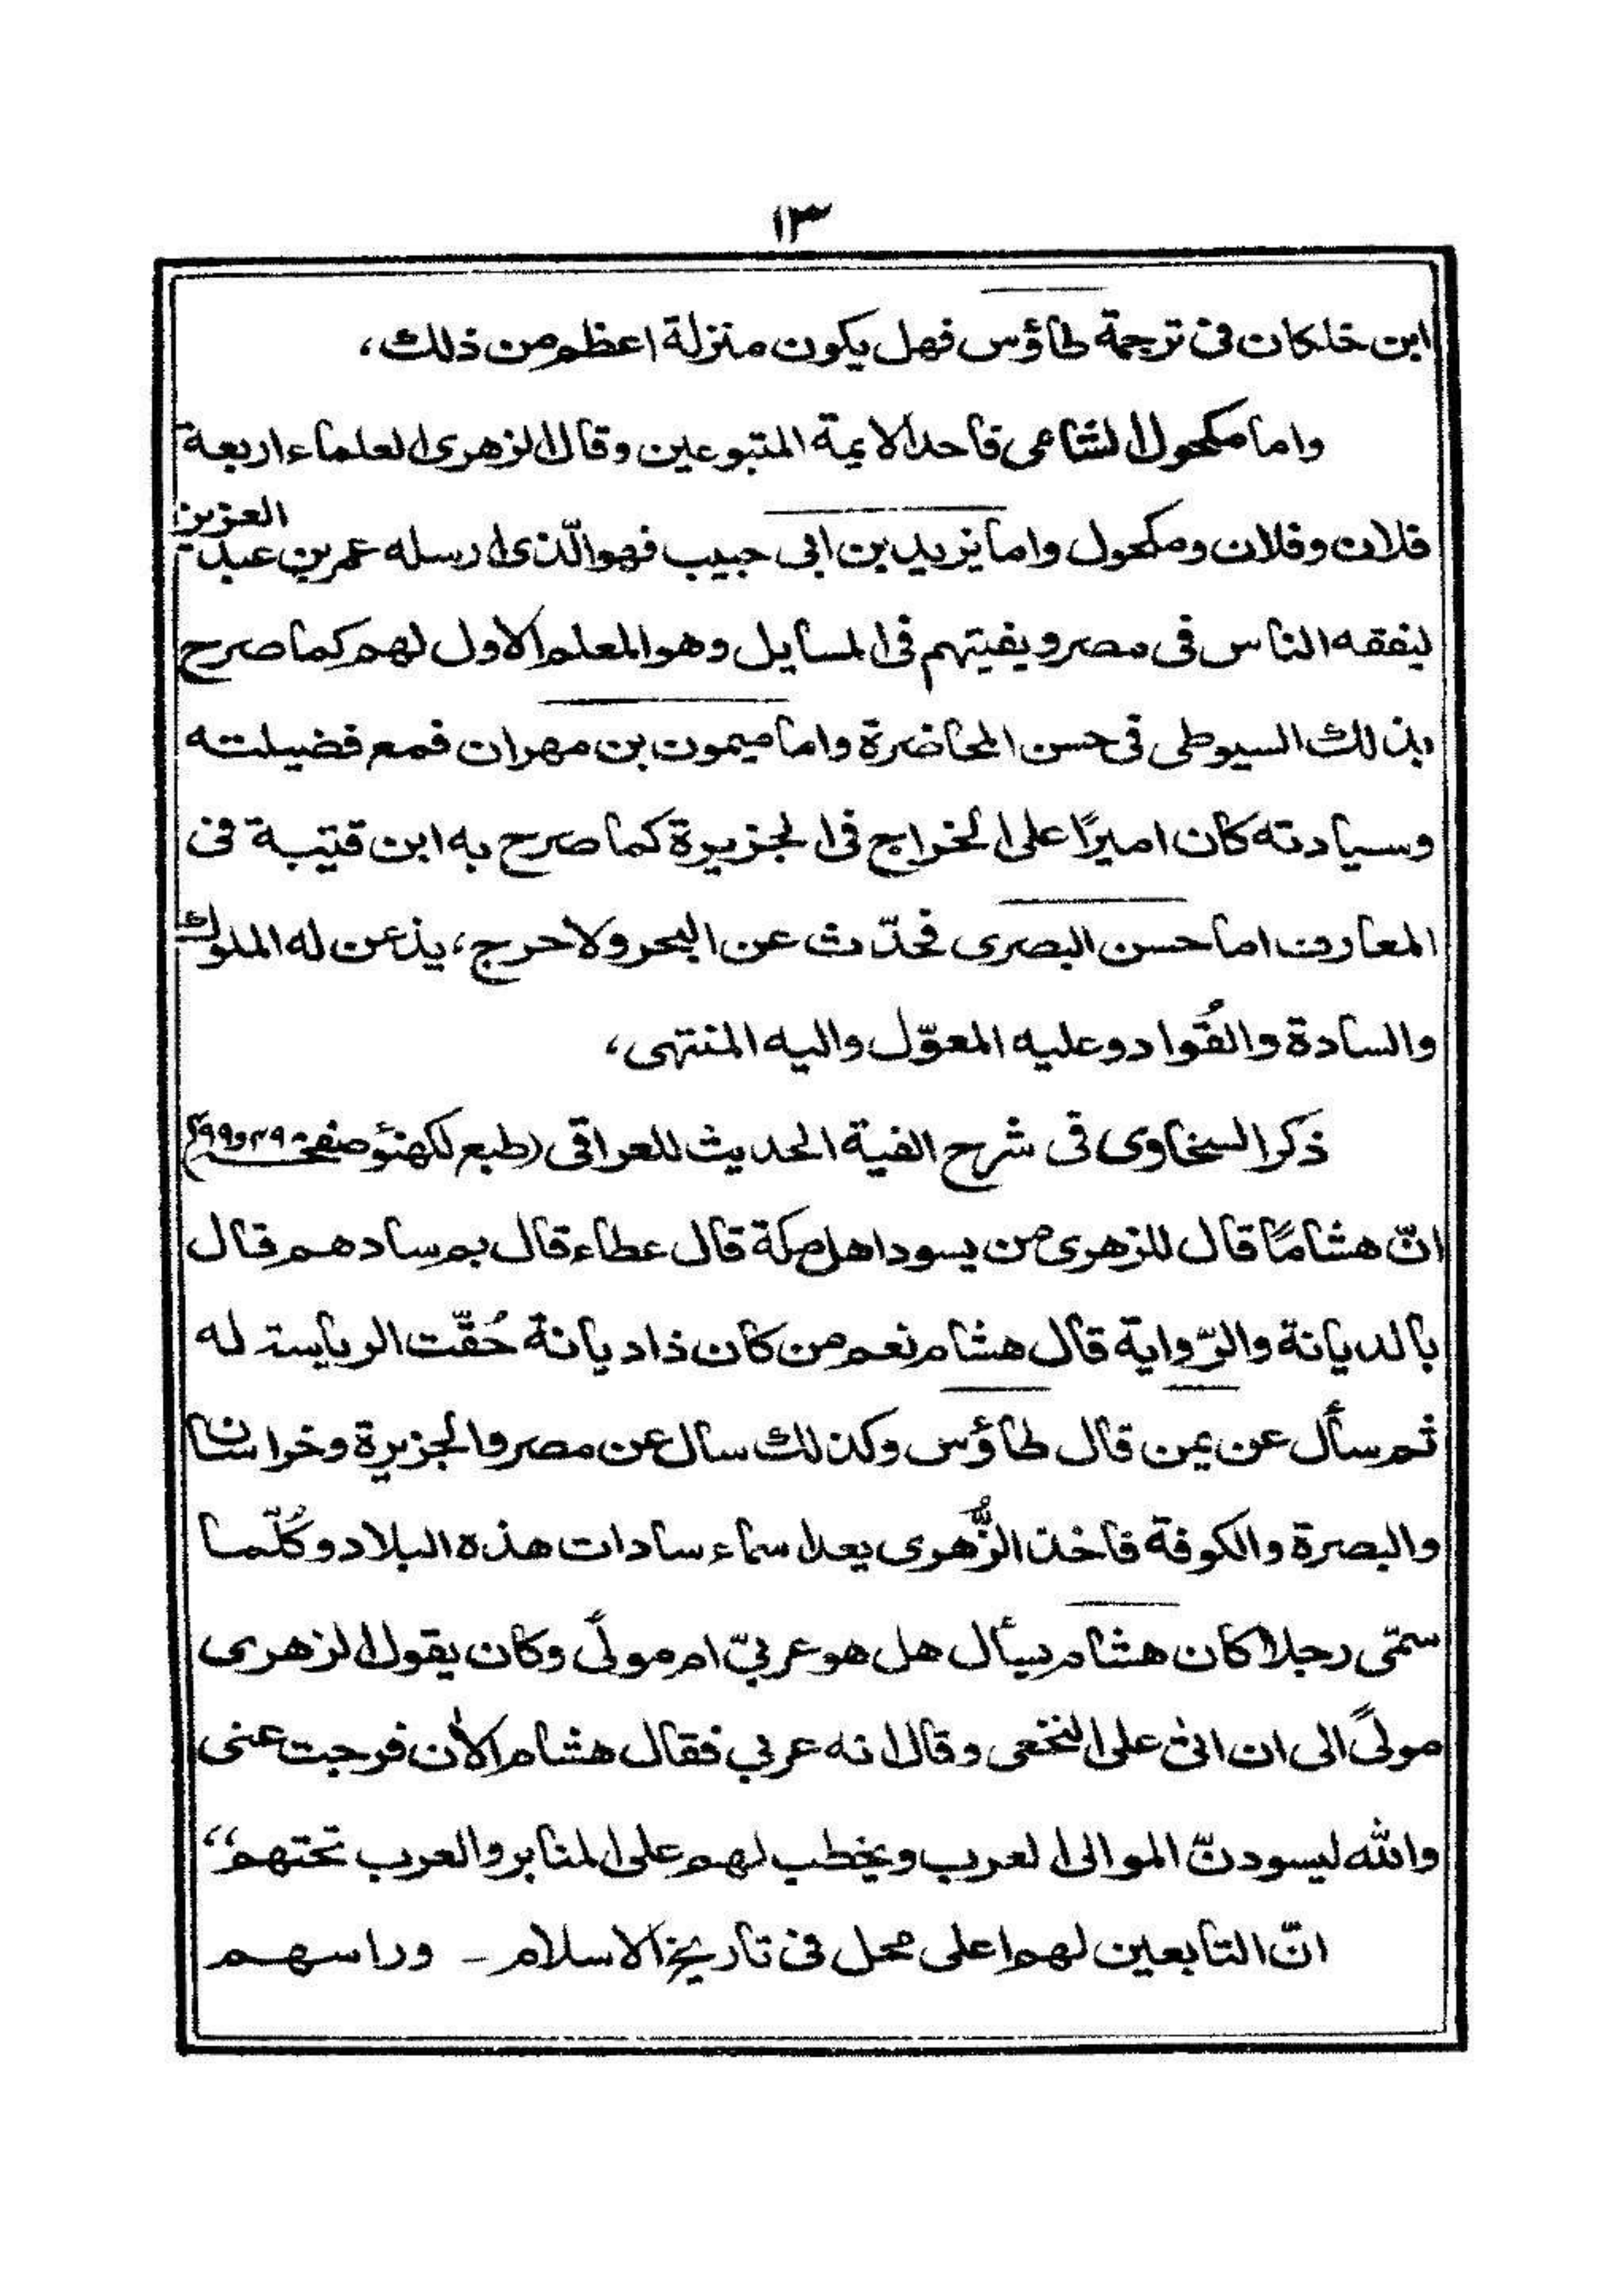 ١٣
ابن خلكان فى ترجمة طاؤس فهل يكون منزلة اعظم من ذلك،
واما مكحول الشامى فاحد الايمة المتبوعين وقال الزهرى العلماء اربعة
فلان وفلان ومكحول واما يزيد بن ابى حبيب فهو الّذى ارسله عمر بن عبد العزيز
ليفقه الناس فى مصر ويفيتهم فى المسايل وهو المعلم الاول لهم كما صرح
بذلك السيوطى فى حسن المحاضرة واما ميمون بن مهران فمع فضيلته
وسيادته كان اميرًا على الخراج فى الجزيرة كما صرح به ابن قتيبة فى
المعارف اما حسن البصرى فحدّث عن البحر ولا حرج، يذعن له الملوك
والسادة والقُواد وعليه المعوّل واليه المنتهى،
ذكر السخاوى فى شرح الفية الحديث للعراقى (طبع لكهنئو صفحه
انّ هشامًا قال للزهرى من يسود اهل مكة قال عطاء قال بم سادهم قال
بالديانة والرّواية قال هشام نعم من كان ذا ديانة حُقّت الرياسة له
ثم سأل عن يمن قال طاؤس وكذلك سال عن مصر والجزيرة وخراسان
والبصرة والكوفة فاخذ الزُّهرى يعد اسماء سادات هذه البلاد وكُلّما
سمّى رجلا كان هشام يسأل هل هو عربيّ ام مولًى وكان يقول الزهرى
مولًى الى ان اتى على النخعى وقال انه عربي فقال هشام الأن فرجت عنى
والله ليسودنّ الموالى العرب ويخطب لهم على المنابر والعرب تحتهم"
انّ التابعين لهم اعلى محل فى تاريخ الاسلام - وراسهم